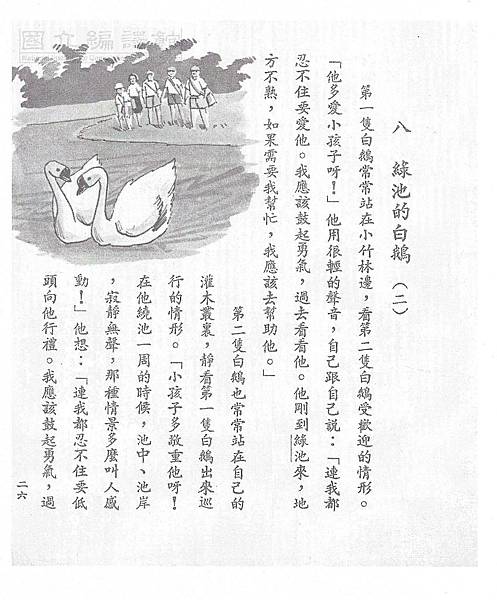 國立編譯館
八 綠池的白鵝（二）
第一隻白鵝常常站在小竹林邊，看第二隻白鵝受歡迎的情形。
「他多愛小孩子呀！」他用很輕的聲音，自己跟自己說：「連我都
忍不住要愛他。我應該鼓起勇氣，過去看看他。他剛到綠池來，地
方不熟，如果需要我幫忙，我應該去幫助他。」
第二隻白鵝也常常站在自己的
灌木叢裏，靜看第一隻白鵝出來巡
行的情形。「小孩子多敬重他呀！
在他繞池一周的時候，池中、池岸
，寂靜無聲，那種情景多麼叫人感
動！」他想：「連我都忍不住要低
頭向他行禮。我應該鼓起勇氣，過
二六